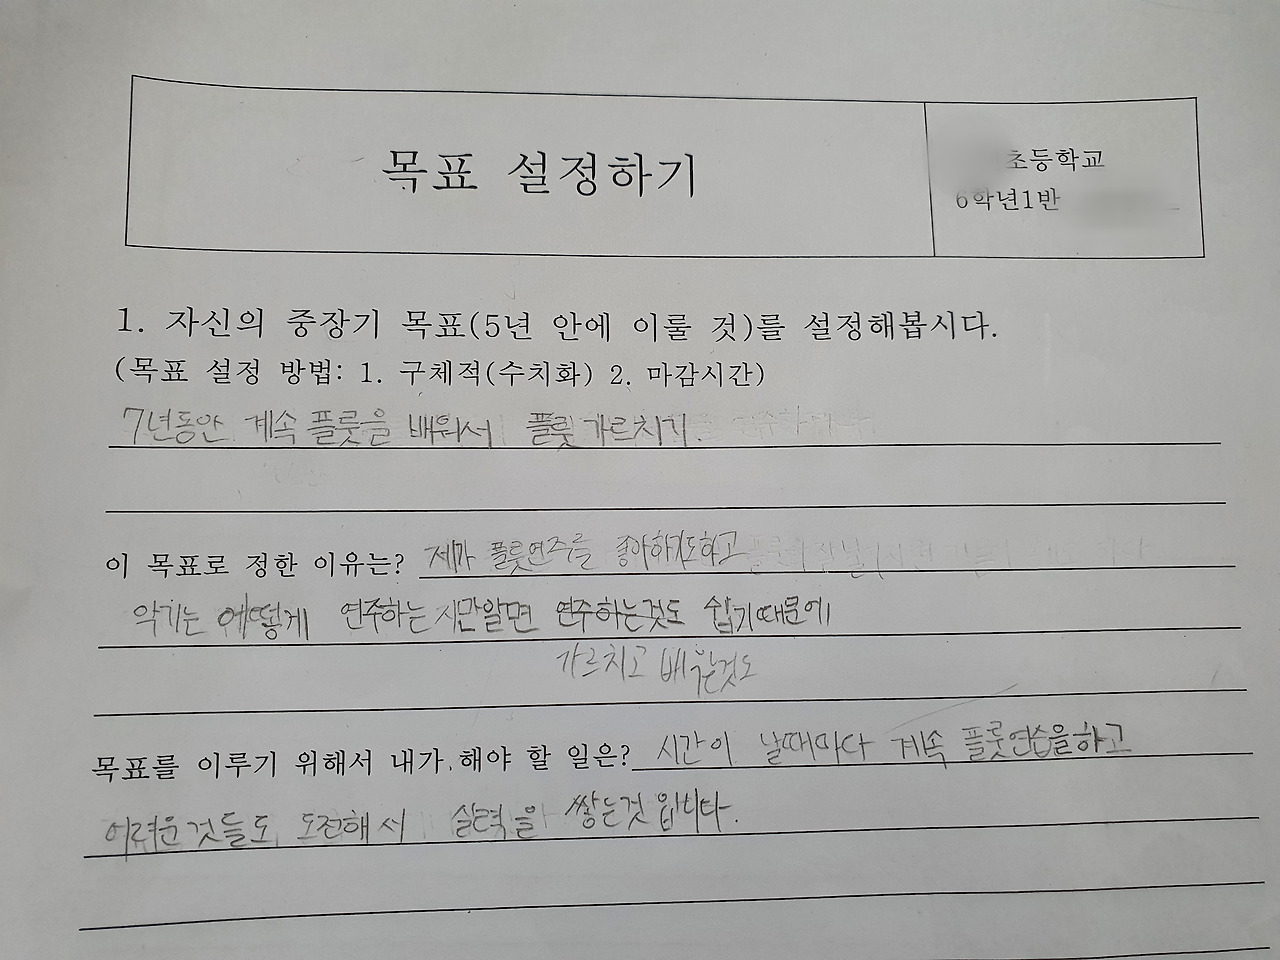 목표 설정하기
초등학교
6학년1반
1. 자신의 중장기 목표(5년 안에 이룰 것)를 설정해봅시다.
(목표 설정 방법: 1. 구체적(수치화) 2. 마감시간)
7년동안 계속 플룻을 배워서 플룻 가르치기.
이 목표로 정한 이유는? 제가 플룻연주를 좋아하기도하고
악기는 어떻게 연주하는 지만알면 연주하는것도 쉽기때문에
가르치고 배우는것도
목표를 이루기 위해서 내가 해야 할 일은? 시간이 날때마다 계속 플룻연습을하고
어려운것들도 도전해서 실력을 쌓는것 입니다.